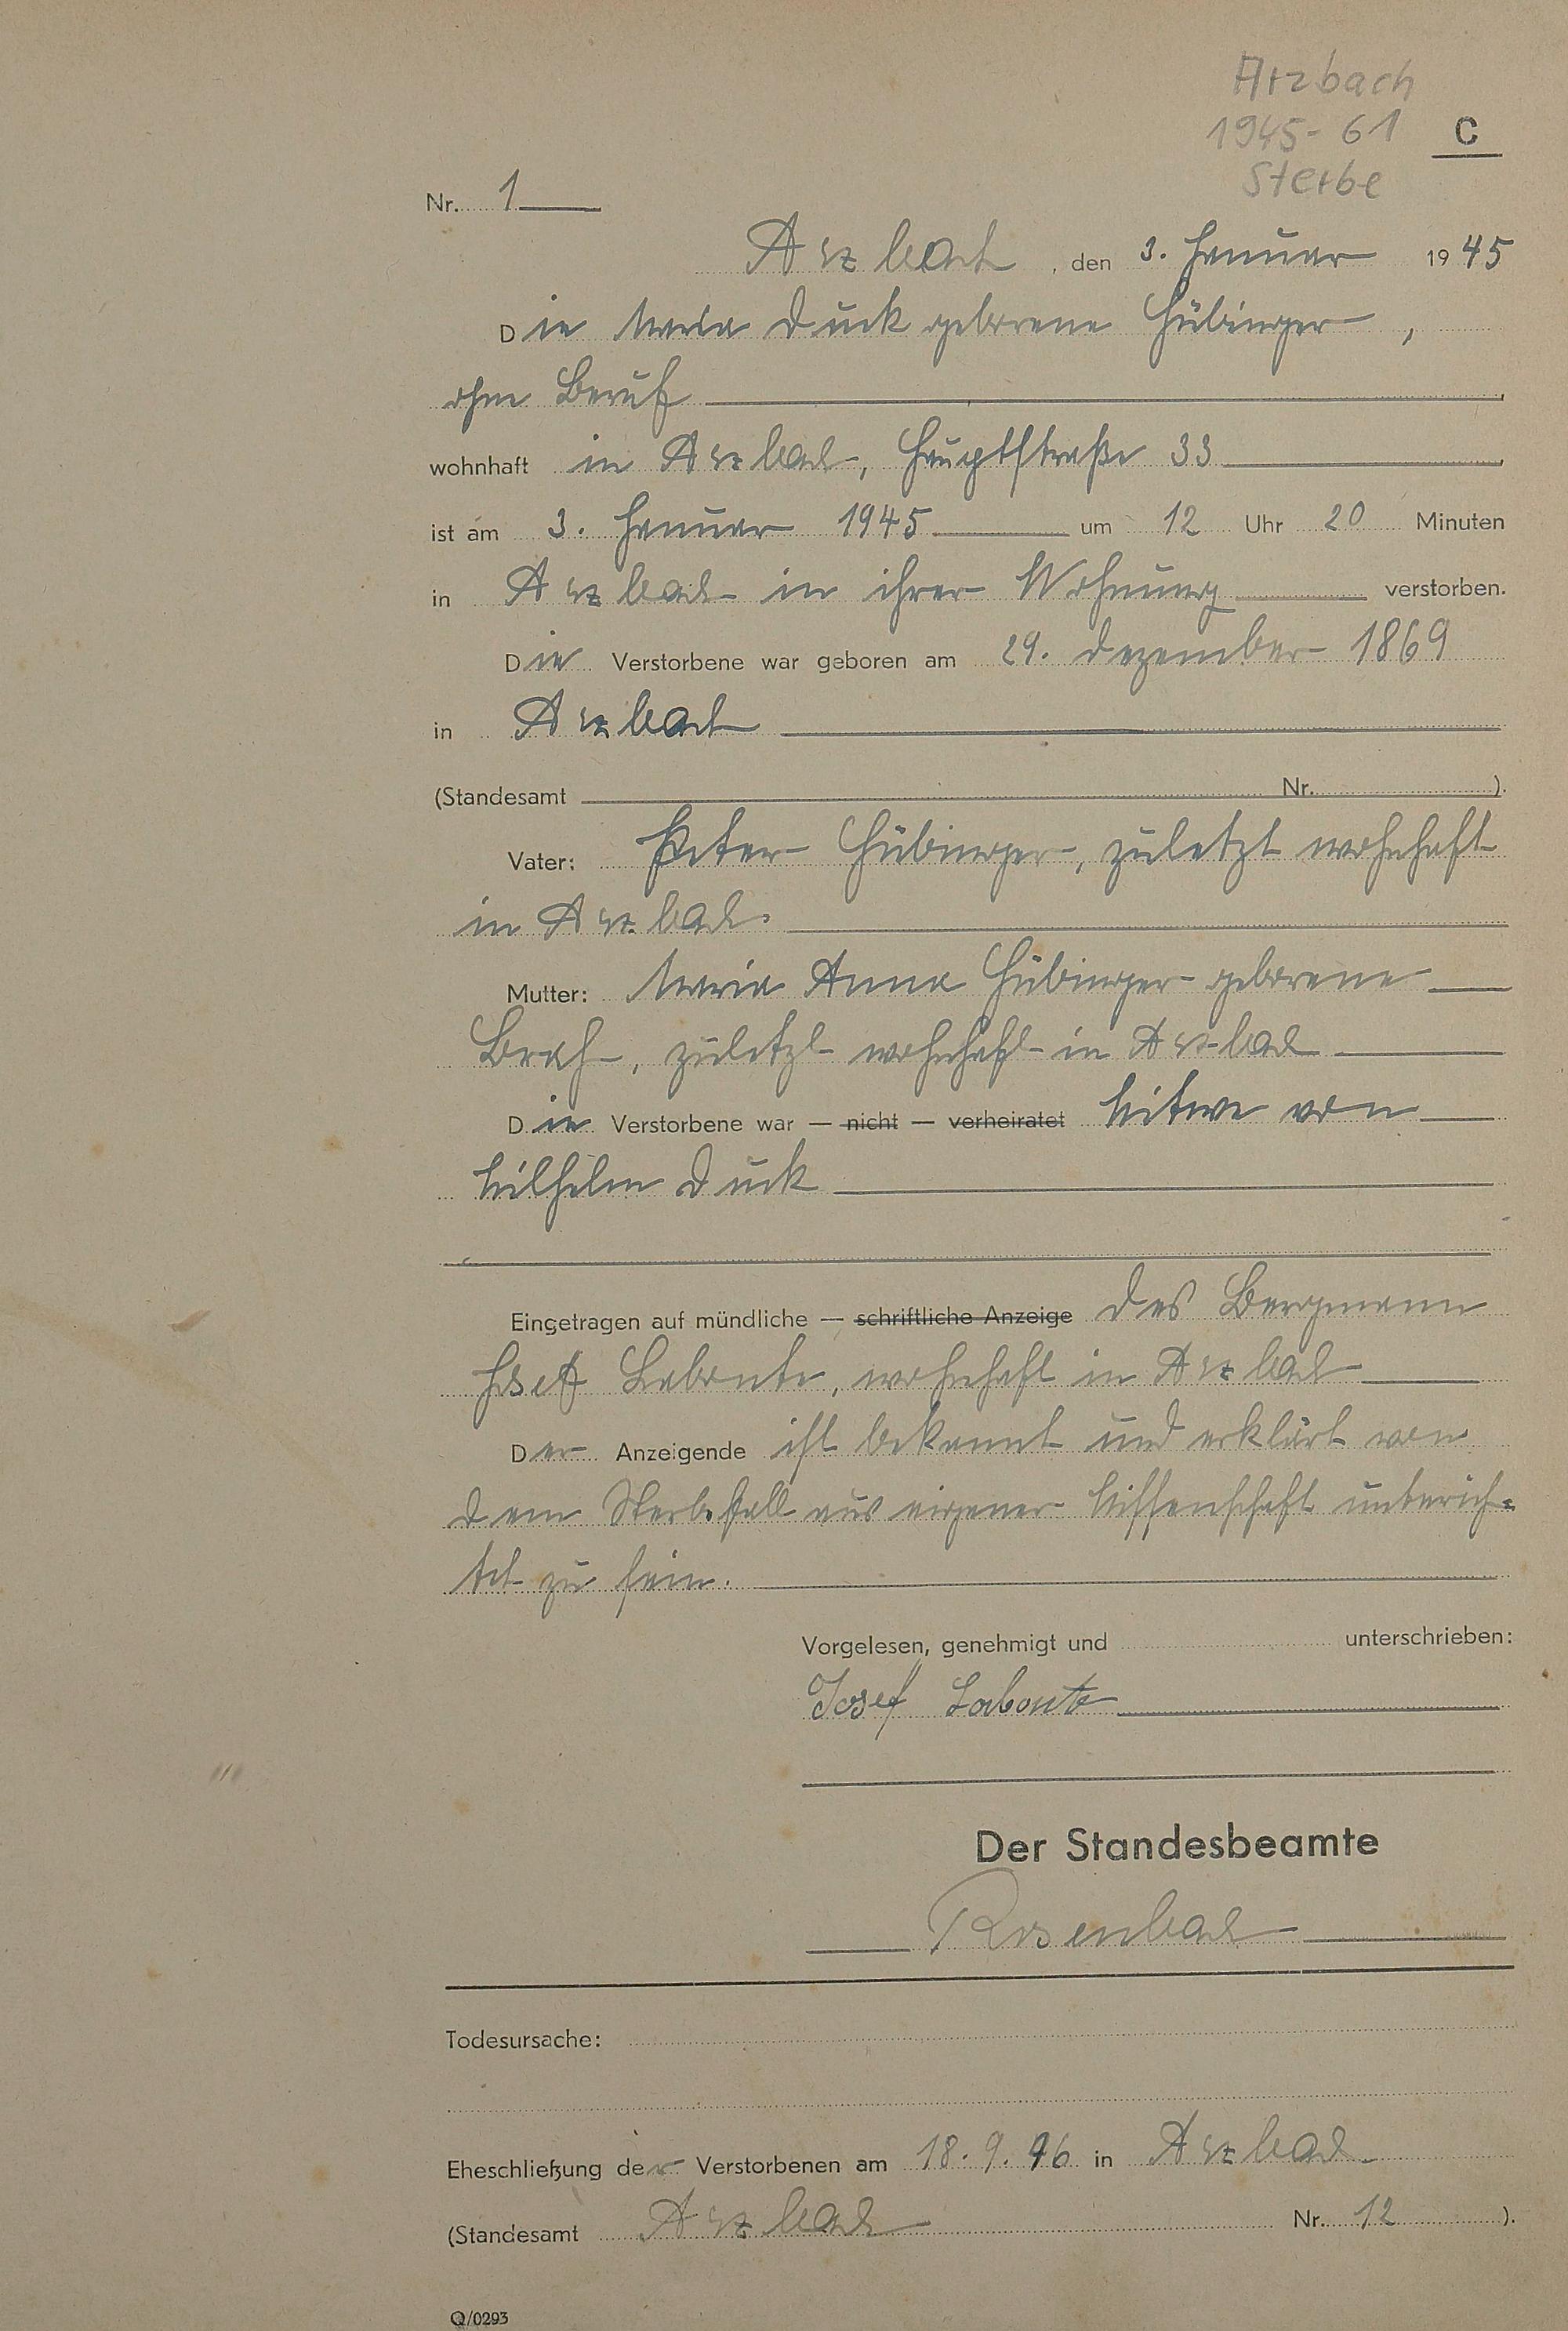 Arzbach
1945-61
Sterbe
C
Nr. 1
Arzbach, den 3. Januar 1945
Die Maria Duck geborene Hübinger,
ohne Beruf
wohnhaft in Arzbach, Hauptstraße 33
ist am 3. Januar 1945 um 12 Uhr 20 Minuten
in Arzbach in ihrer Wohnung verstorben.
Die Verstorbene war geboren am 29. Dezember 1869
in Arzbach
(Standesamt Nr. ).
Vater: Peter Hübinger, zuletzt wohnhaft
in Arzbach.
Mutter: Maria Anna Hübinger geborene
, zuletzt wohnhaft in Arzbach
Die Verstorbene war — nicht — verheiratet Witwe von
Wilhelm Duck
Eingetragen auf mündliche — schriftliche Anzeige des Bergmann
Josef Labonte, wohnhaft in Arzbach
Der Anzeigende ist bekannt und erklärt von
dem Sterbefall aus eigener Wissenschaft unterich=
tet zu sein.
Vorgelesen, genehmigt und unterschrieben:
Josef Labonte
Der Standesbeamte
Rosenbach
Todesursache:
Eheschließung der Verstorbenen am 18.9.96 in Arzbach
(Standesamt Arzbach Nr. 12 ).
Q/0293